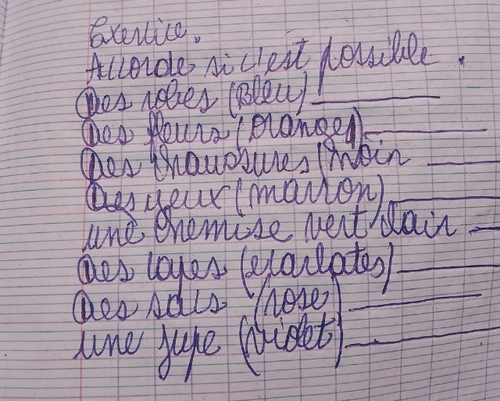 Exercice.
Accorde si c'est possible.
Des robes (Bleu)
Des fleurs (orange)
Des chaussures (noir
Des yeux (marron)
une chemise vert clair
Des capes (
Des sacs (rose)
une jupe (violet)